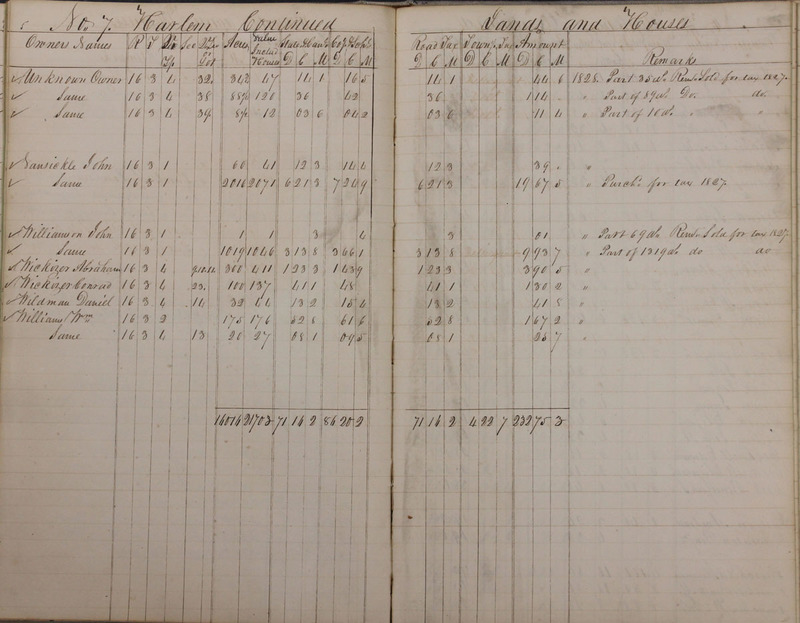 No. 7. Harlem Continued Lands and Houses
Owners Names R T Qr Tp Sec Acres Value Includ Houses State & Canl D C M D C M Road Tax D C M Town Tax D C M Amount D C M Remarks
Unknown Owner 16 3 4 32 47 14 1 16 5 14 1 44 6 1828. Part 35 als Rem. Sold for tax 1827.
Same 16 3 4 38 120 36 42 36 1 14 " Part of 89 als Do. do
Same 16 3 4 39 12 03 6 04 2 03 6 11 4 " Part of 10 als " "
Vansickle John 16 3 1 60 41 12 3 14 4 12 3 39 "
Same 16 3 1 2016 2071 6 21 3 7 24 9 6 21 3 19 67 5 " Purchd for tax 1827.
Williamson John 16 3 1 1 1 3 4 3 01 " Part 69 als Rem. Sold for tax 1827
Same 16 3 1 1019 1046 3 13 8 3 66 1 3 13 8 9 93 7 " Part of 1319 als do do
Wickizer Abraham 16 3 4 9.10.11. 300 411 1 23 3 1 43 9 1 23 3 3 90 5 "
Wickizer Conrad 16 3 4 23. 100 137 41 1 48 41 1 1 30 2 "
Wildman Daniel 16 3 4 14 32 44 13 2 15 4 13 2 41 8 "
Williams Wm 16 3 2 175 176 52 8 61 6 52 8 1 67 2 "
Same 16 3 4 13 20 27 08 1 09 5 08 1 25 7 "
16016 21703 71 16 2 86 20 2 71 16 2 4 22 7 232 75 3